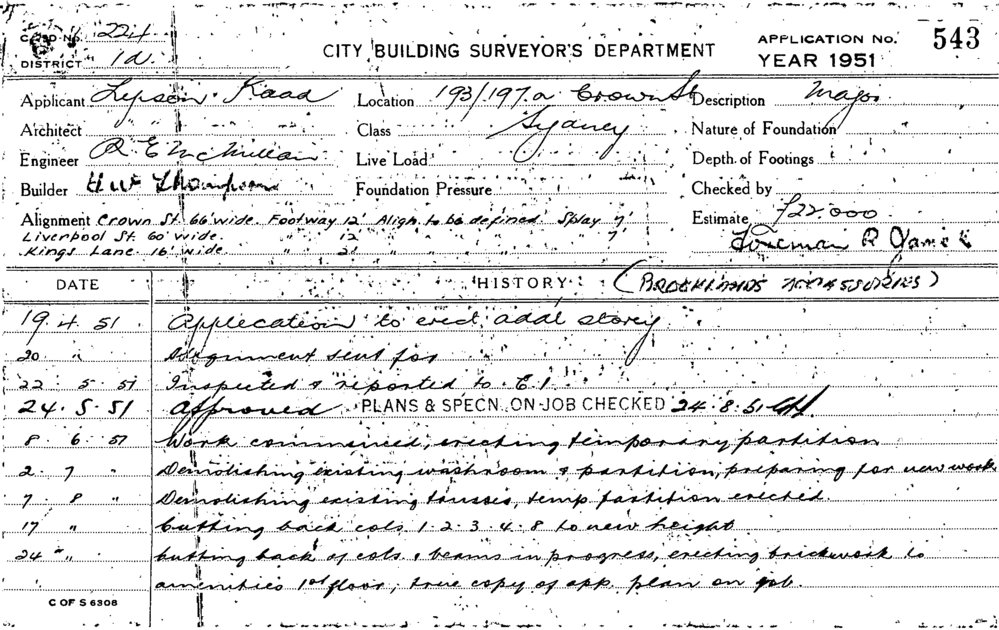 CARD No. 224
DISTRICT 1d.
CITY BUILDING SURVEYOR'S DEPARTMENT
APPLICATION No. 543
YEAR 1951
Applicant Lepson Kaad Location 193/197a Crown St Description Major
Architect Class Sydney Nature of Foundation
Engineer R. E McMillan Live Load Depth of Footings
Builder H W Thompson Foundation Pressure Checked by
Alignment Crown St. 66' wide. Footway 12' Align. to be defined Splay 7' Estimate £22.000
Liverpool St. 60' wide. " 12 " " " " 7'
Kings Lane 16' wide " 2' " " "
Foreman R
DATE HISTORY (
19. 4. 51 Application to erect addl storey
20 " Alignment sent for
22. 5. 51 Inspected & reported to E.1.
24. 5. 51 Approved PLANS & SPECN. ON JOB CHECKED 24.8.51
8 6. 51 Work commenced, erecting temporary partition
2. 7 " Demolishing existing washroom & partition, preparing for new work
7. 8 " Demolishing existing trusses, temp partition erected.
17 " Cutting back cols. 1. 2. 3. 4. 8 to new height
24 " " Cutting back of cols & beams in progress, erecting brickwork to
amenities 1st floor, true copy of app. plan on job.
C OF S 6308